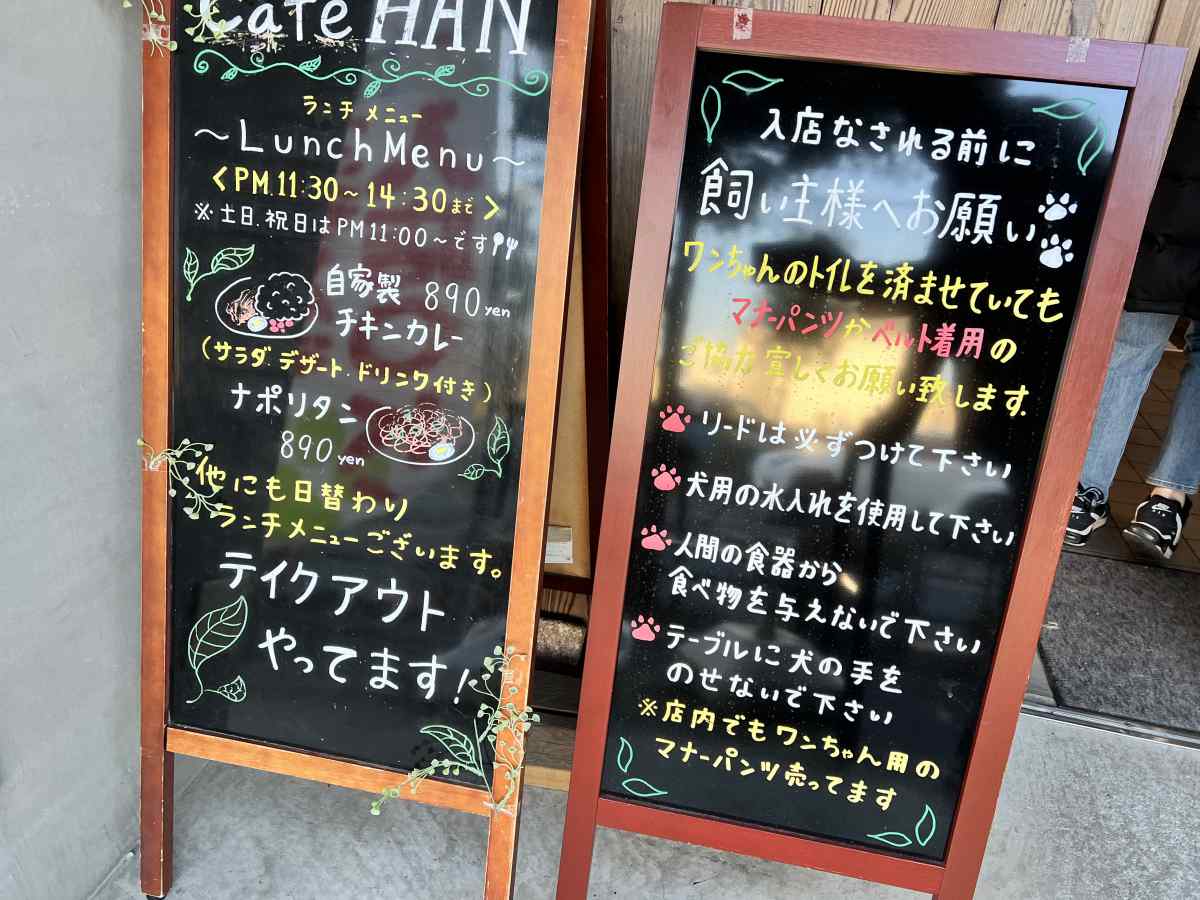 Cafe HAN
ランチ メニュー
～Lunch Menu～
<PM.11:30～14:30まで>
※土日.祝日はPM11:00～です
自家製 890yen
チキンカレー
(サラダ.デザート.ドリンク付き)
ナポリタン
890yen
他にも日替わり
ランチメニューございます。
テイクアウト
やってます!
入店なされる前に
飼い主様へお願い
ワンちゃんのトイレを済ませていても
マナーパンツかベルト着用の
ご協力 宜しくお願い致します.
リードは必ずつけて下さい
犬用の水入れを使用して下さい
人間の食器から
食べ物を与えないで下さい
テーブルに犬の手を
のせないで下さい
※店内でもワンちゃん用の
マナーパンツ売ってます